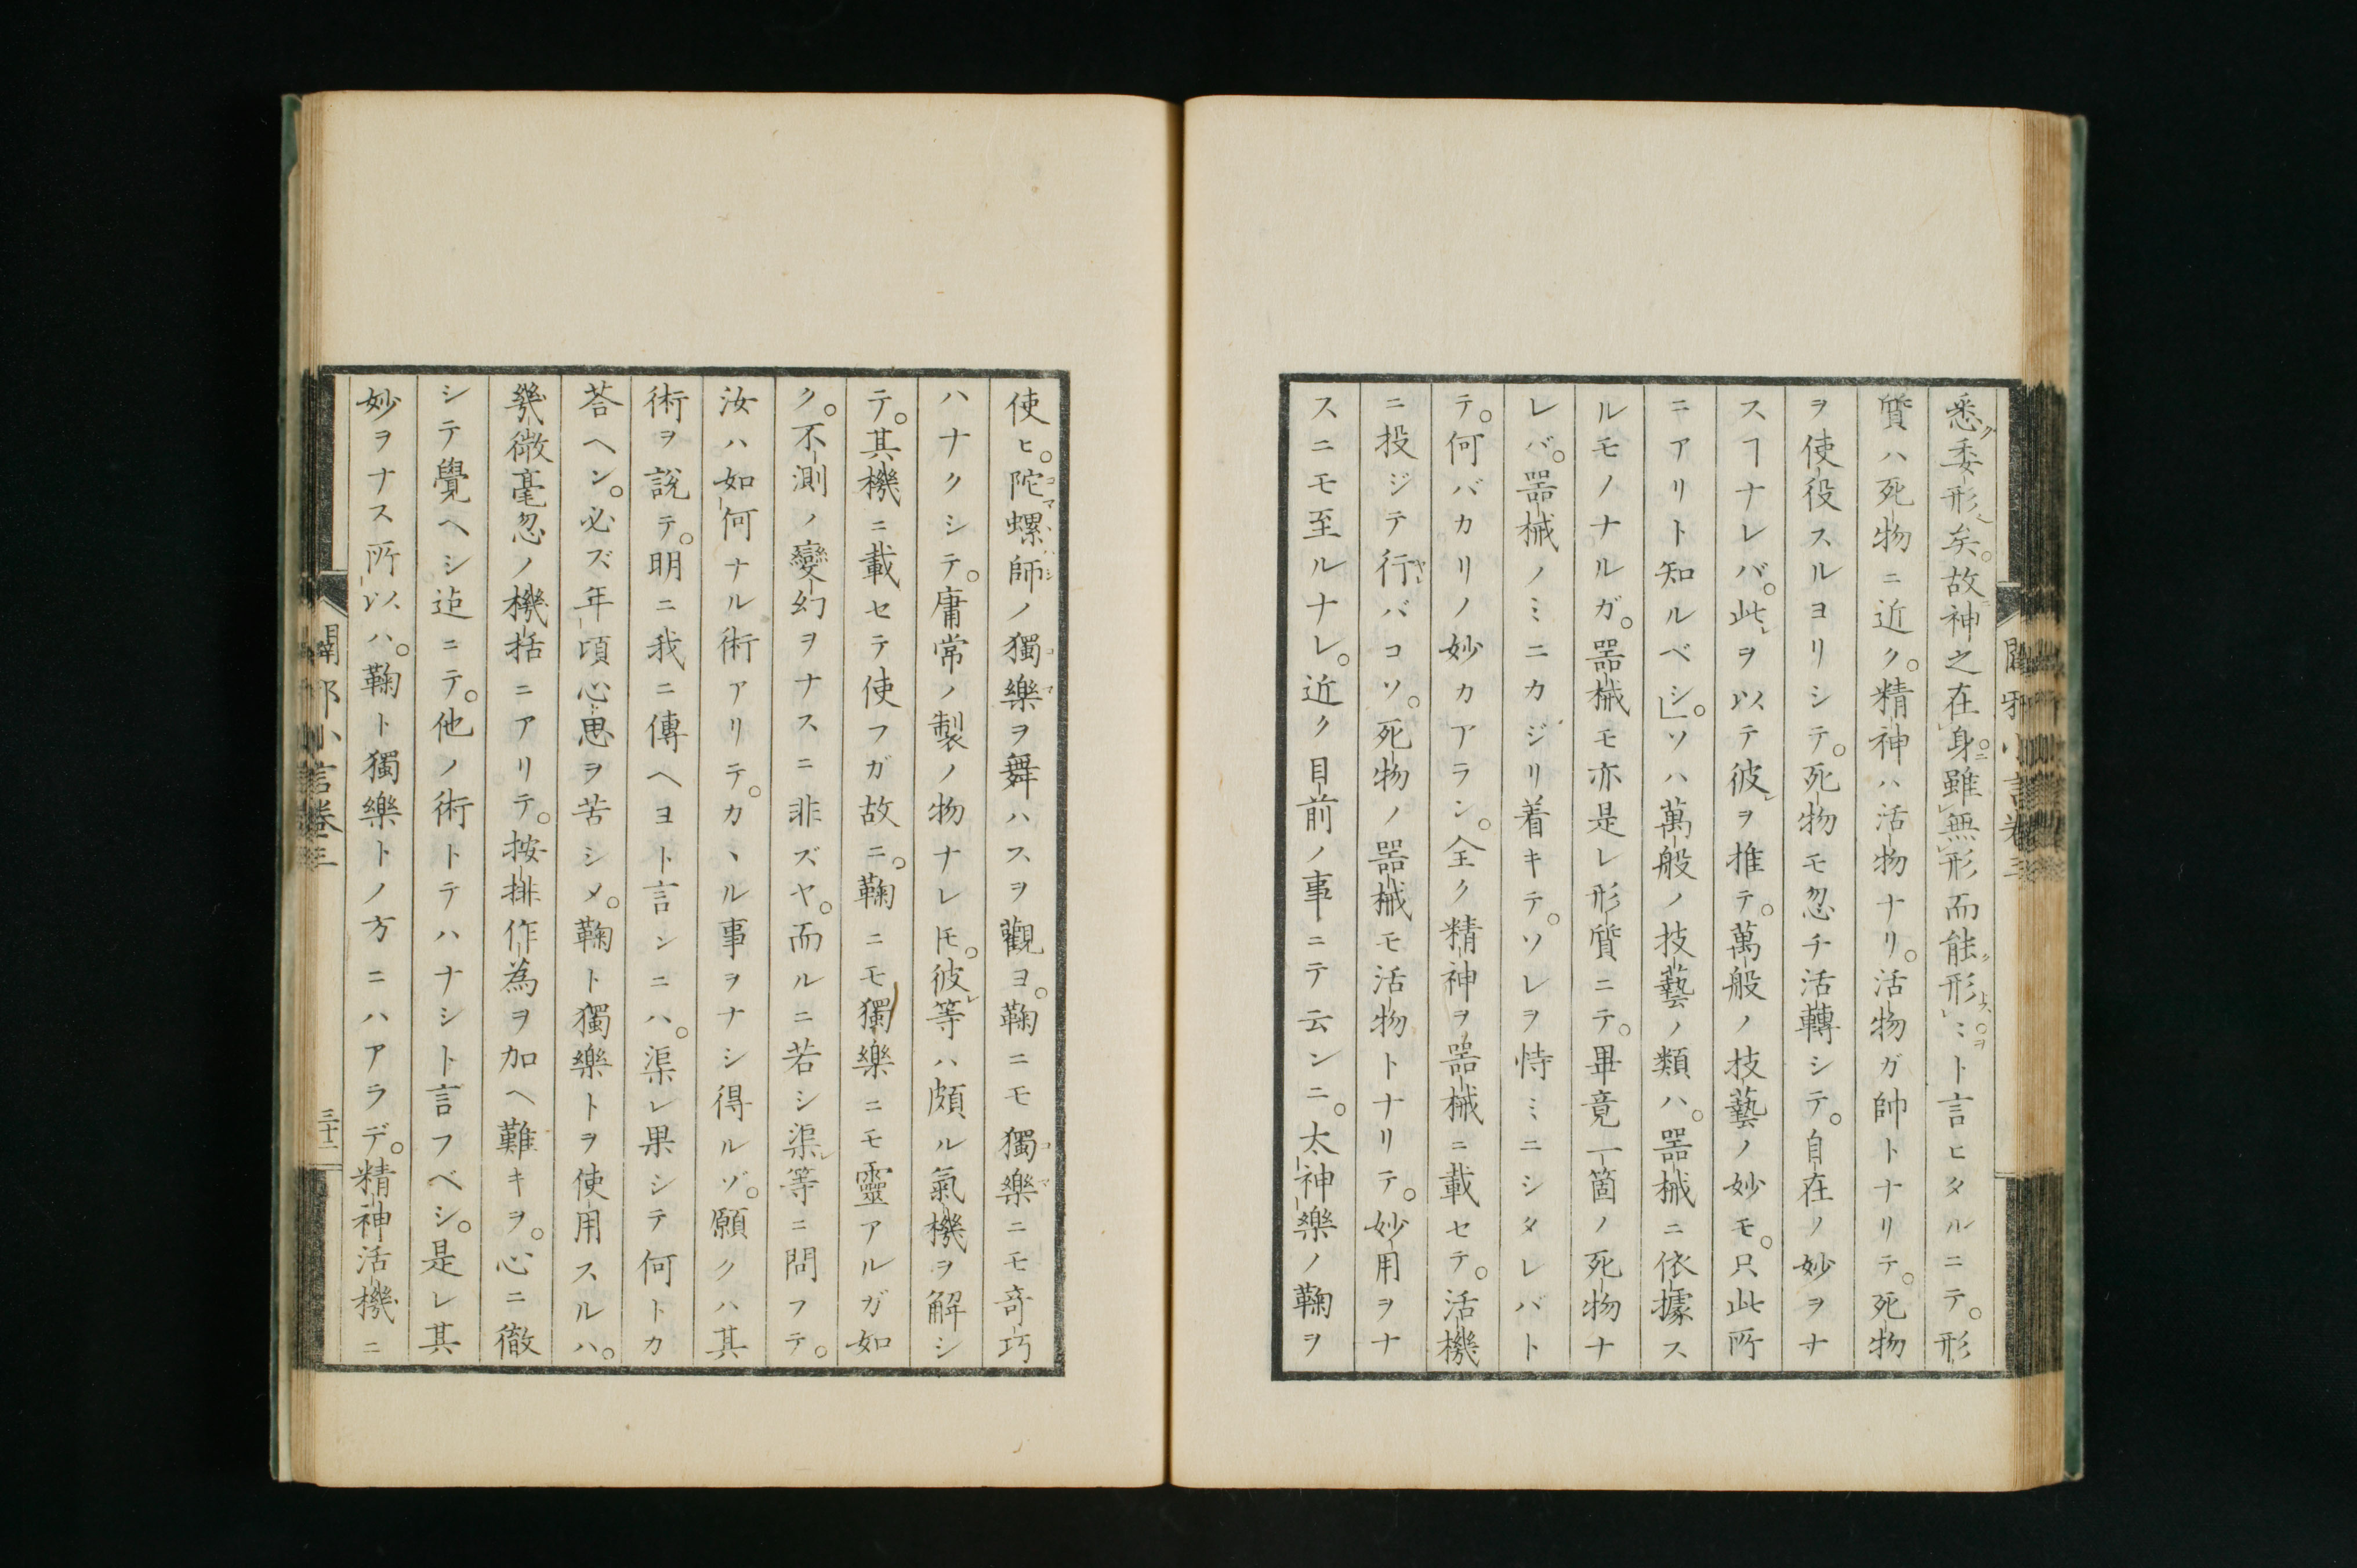 悉委形矣。故神之在身。雖無形而能形ミト言ヒタルニテ。形
質ハ死物ニ近ク。精神ハ活物ナリ。活物ガ帥トナリテ。死物
ヲ使役スルヨリシテ。死物モ忽チ活轉シテ。自在ノ妙ヲナ
スヿナレバ。此ヲ以テ彼ヲ推テ。萬般ノ技藝ノ妙モ。只此所
ニアリト知ルベシ」。ソハ萬般ノ技藝ノ類ハ。噐械ニ依據ス
ルモノナルガ。噐械モ亦是レ形質ニテ。畢竟一箇ノ死物ナ
レバ。噐械ノミニカジリ着キテ。ソレヲ恃ミニシタレバト
テ。何バカリノ妙カアラン。全ク精神ヲ噐械ニ載セテ。活機
ニ投ジテ行バコソ。死物ノ噐械モ活物トナリテ。妙用ヲナ
スニモ至ルナレ。近ク目前ノ事ニテ云ンニ。太神樂ノ鞠ヲ
使ヒ。陀螺師ノ獨樂ヲ舞ハスヲ觀ヨ。鞠ニモ獨樂ニモ奇巧
ハナクシテ。庸常ノ製ノ物ナレ𪜈。彼等ハ頗ル氣機ヲ解シ
テ。其機ニ載セテ使フガ故ニ。鞠ニモ獨樂ニモ靈アルガ如
ク。不測ノ變幻ヲナスニ非ズヤ。而ルニ若シ渠等ニ問フテ。
汝ハ如何ナル術アリテ。カヽル事ヲナシ得ルゾ。願クハ其
術ヲ說テ。明ニ我ニ傳ヘヨト言ンニハ。渠レ果シテ何トカ
荅ヘン。必ズ年頃心思ヲ苦シメ。鞠ト獨樂トヲ使用スルハ。
幾微毫忽ノ機括ニアリテ。按排作為ヲ加ヘ難キヲ。心ニ徹
シテ覺ヘシ迠ニテ。他ノ術トテハナシト言フベシ。是レ其
妙ヲナス所以ハ。鞠ト獨樂トノ方ニハアラデ。精神活機ニ
闢邪小言卷三
三十二